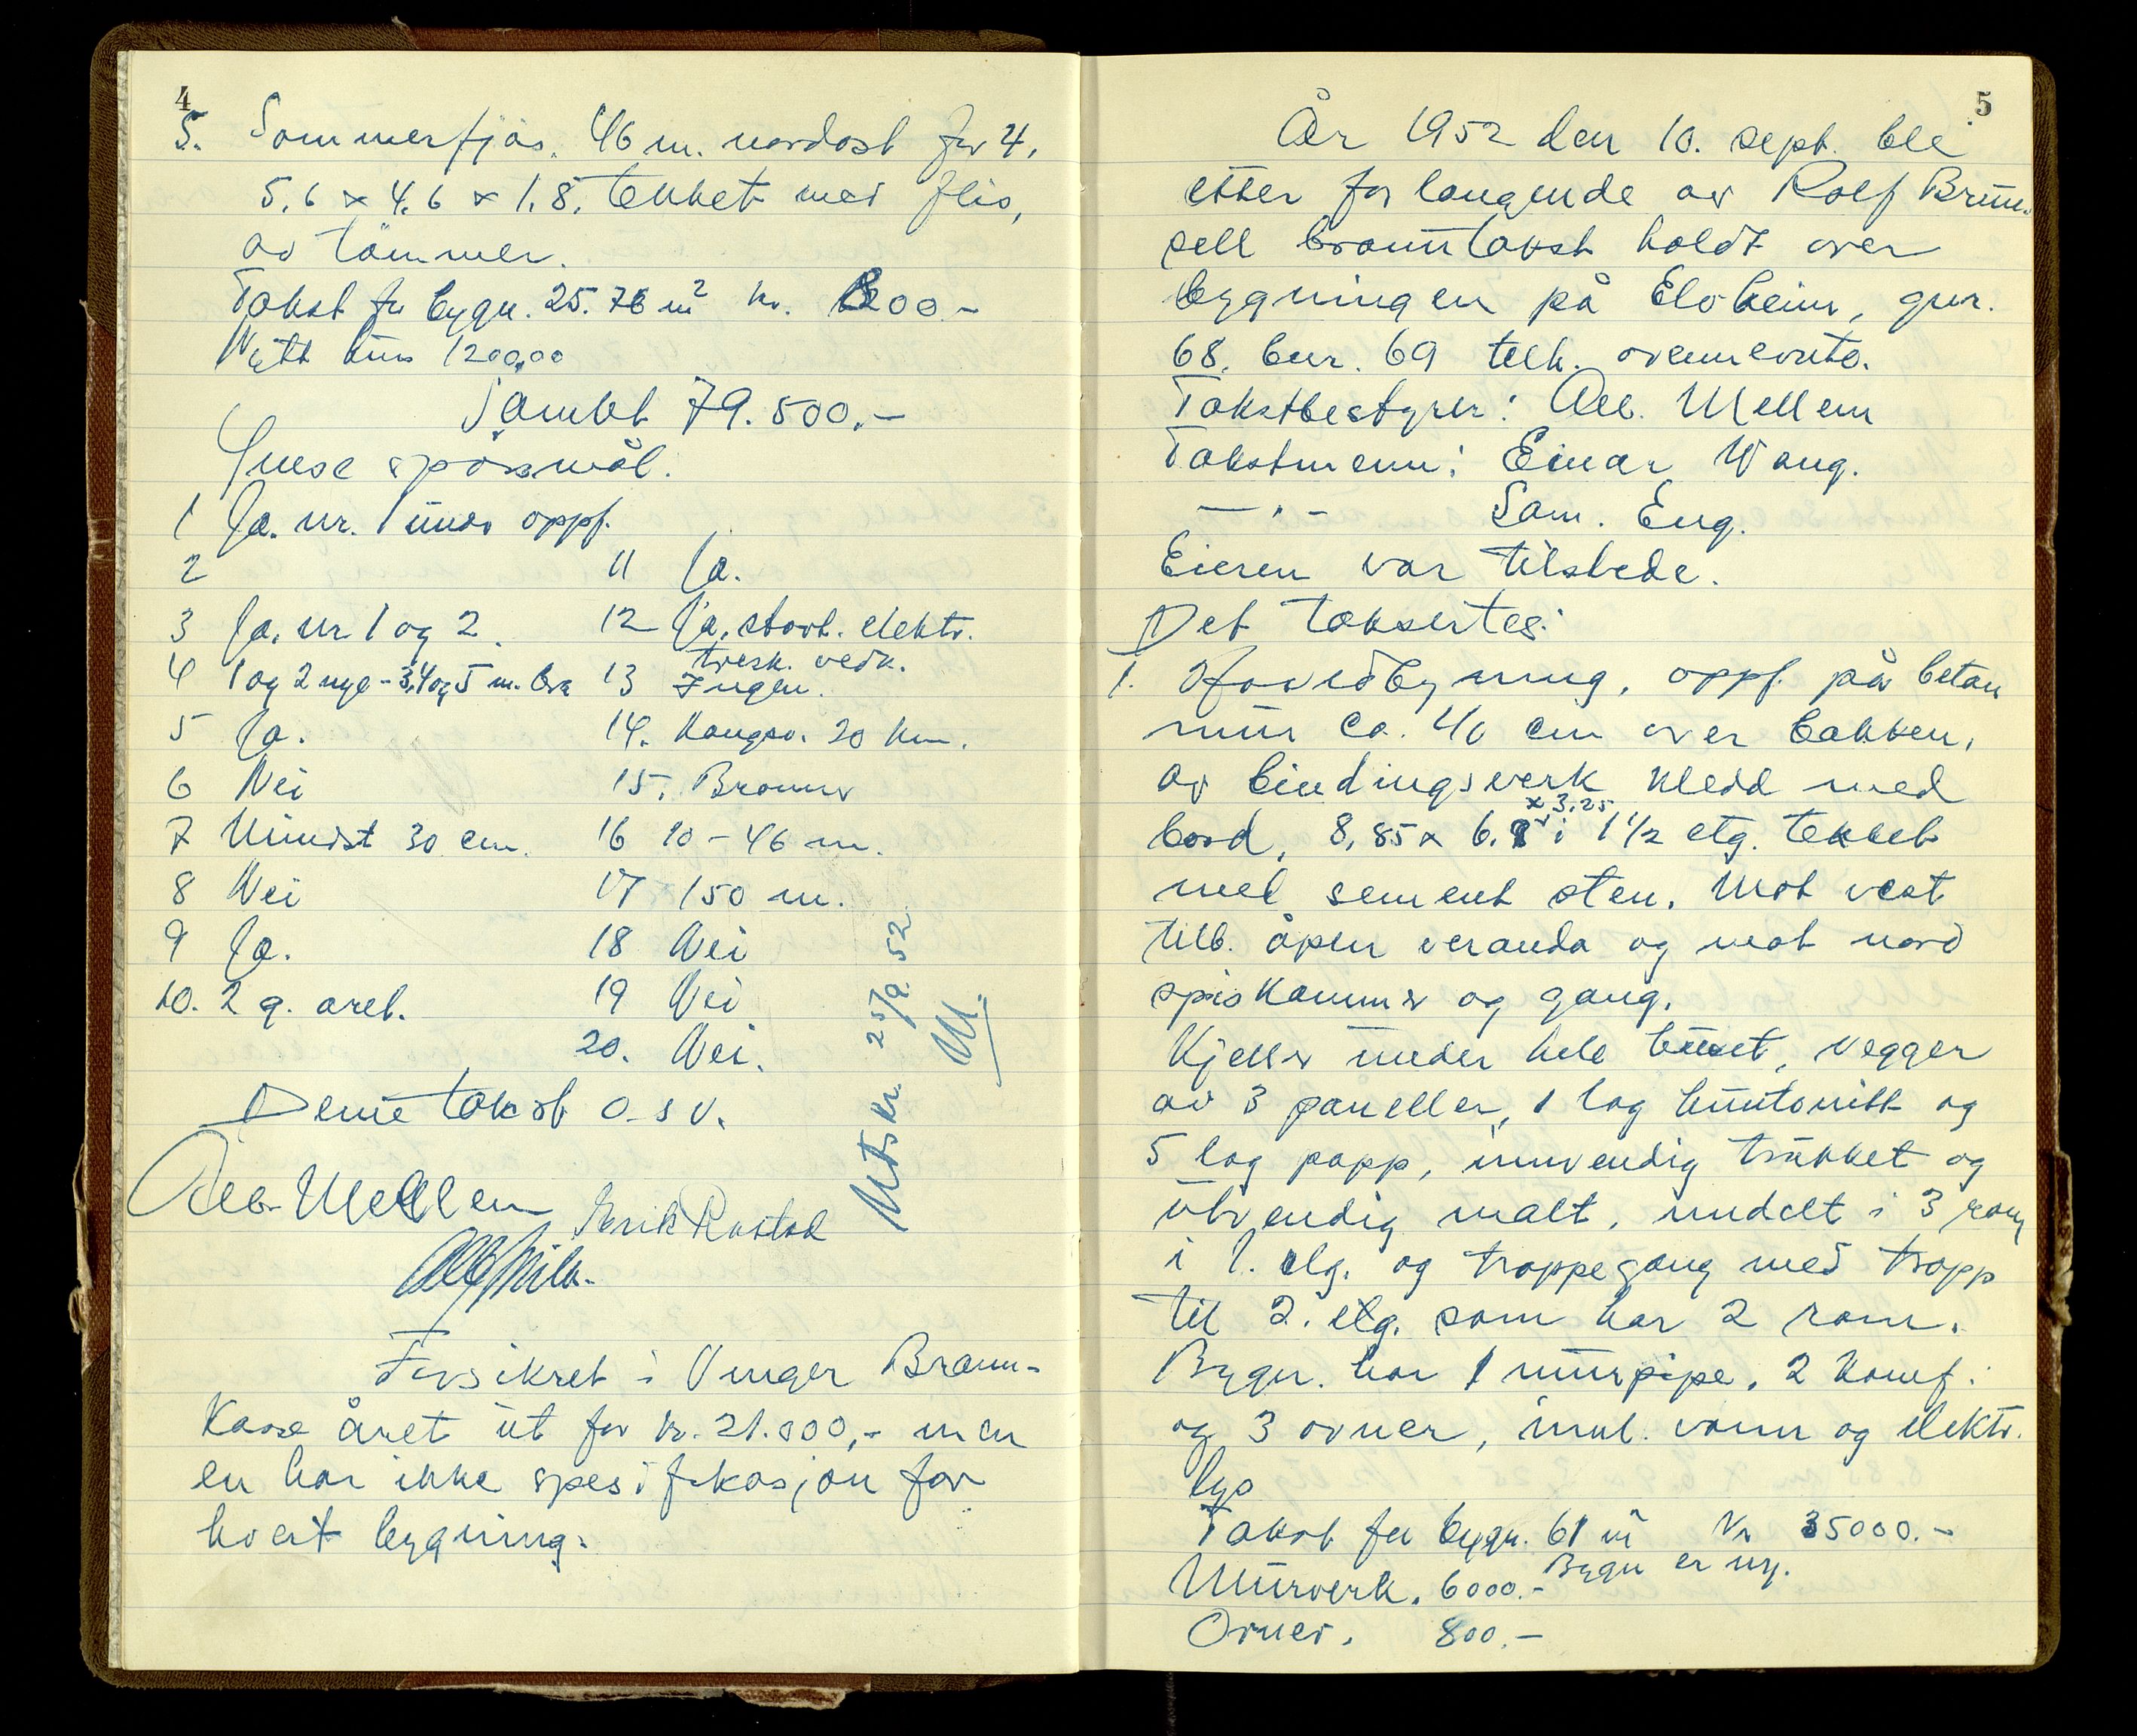 4
5. Sommerfjös. 46 m. nordost for 4.
5.6 x 4.6 x 1.8. tekket med flis,
av tömmer.
Takst for bygn. 25.76 m² kr. 800.-
Nytt hus 1200,00
Samlet 79.500.-
Lyse spörsmål.
1 Ja. nr. 1 und. oppf.
2
3 Ja. nr 1 og 2.
4 1 og 2 nye - 3,4 og 5 m. bra
5 Ja.
6 Nei
7 Minst 30 cm.
8 Nei
9 Ja.
10. 2 g. årl.
11 Ja.
12 Ja, stort. elektr.
tresk. vedk.
13 Ingen.
14. Kongsv. 20 km.
15. Brönner
16 10 - 46 m.
17 150 m.
18 Nei
19 Nei
20. Nei.
Utskr. 25/9. 52
M.
Denne takst o.s.v.
Alb. Mellem Henrik Rastad
Forsikret i Vinger Brann-
kasse året ut for kr. 21.800,- men
en har ikke spesifikasjon for
hvert bygning.
5
År 1952 den 10. sept. ble
etter forlangende av Rolf Brun-
sell branntakst holdt over
bygningen på Elvheim, gnr.
68. bnr. 69 tilh. ovennevnte.
Takstbestyrer: Alb. Mellem
Takstmenn: Einar Wang.
— " — Sam. Eng.
Eieren var tilstede.
Det taksertes:
1. Hovedbygning, oppf. på betan
mur ca. 40 cm over bakken,
av bindingsverk kledd med
x 3,25
bord, 8,85 x 6.9 i 1 1/2 etg. tekket
med sement sten. Mot vest
tilb. åpen veranda og mot nord
spiskammer og gang.
Kjeller under hele huset, vegger
av 3 paneller, 1 lag huntonitt og
5 lag papp, innvendig trukket og
utvendig malt, inndelt i 3 rom
i 1. etg. og trappegang med trapp
til 2. etg. som har 2 rom.
Bygn. har 1 murpipe, 2 komf.
og 3 ovner, innl. vann og elektr.
lys
Takst for bygn. 61 m² Kr 35000.-
Bygn er ny.
Murverk. 6000.-
Ovner. 800.-